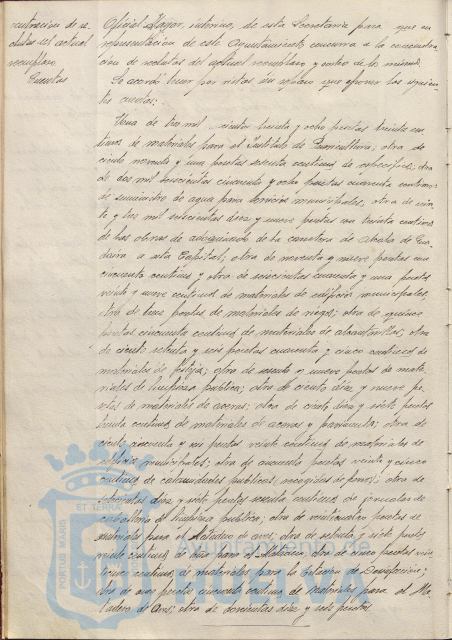 centración de re-
clutas del actual
reemplazo
Cuentas
Oficial Mayor, interino, de esta Secretaría para que en
representación de este Ayuntamiento concurra a la concentra-
ción de reclutas del actual reemplazo y sorteo de la misma.
Se acordó traer por vistas su aprobación las siguien-
tes cuentas:
Una de tres mil ciento treinta y ocho pesetas treinta cen-
timos de materiales para el Instituto de Puericultura; otra de
ciento noventa y una pesetas setenta centimos de específicos; otra
de dos mil seiscientas cincuenta y ocho pesetas cuarenta centimos
de suministro de agua para servicios municipales, otra de vein-
te y tres mil setecientas diez y nueve pesetas con treinta centimos
de las obras de adoquinado de la carretera de Alcalá de Gua-
daira a esta Capital; otra de noventa y nueve pesetas con
cincuenta centimos y otra de seiscientas cuarenta y una pesetas
veinte y nueve centimos de materiales de edificios municipales,
otra de tres pesetas de materiales de riegos; otra de quince
pesetas cincuenta centimos de materiales de alcantarillas; otra
de ciento setenta y seis pesetas cuarenta y cinco centimos de
materiales de festejos; otra de sesenta y nueve pesetas de mate-
riales de limpieza publica; otra de ciento diez y nueve pe-
setas de materiales de aceras; otra de ciento diez y siete pesetas
treinta centimos de materiales de aceras y pavimento; otra de
ciento cincuenta y seis pesetas veinte centimos de materiales de
edificios municipales; otra de cincuenta pesetas veinte y cinco
centimos de calamidades publicas, recogidas de perros; otra de
diez y siete pesetas sesenta centimos de jornales de
limpieza publica; otra de veinticuatro pesetas de
materiales para el Matadero de aves; otra de setenta y siete pesetas
veinte centimos de para el Matadero; otra de cinco pesetas vein-
te centimos de materiales para la Estación de Desinfección;
otra de once pesetas cincuenta centimos de materiales para el Ma-
tadero de Aves; otra de doscientas diez y seis pesetas
PORTUS MARIS ET TERRAE
Ayuntamiento de
HUELVA